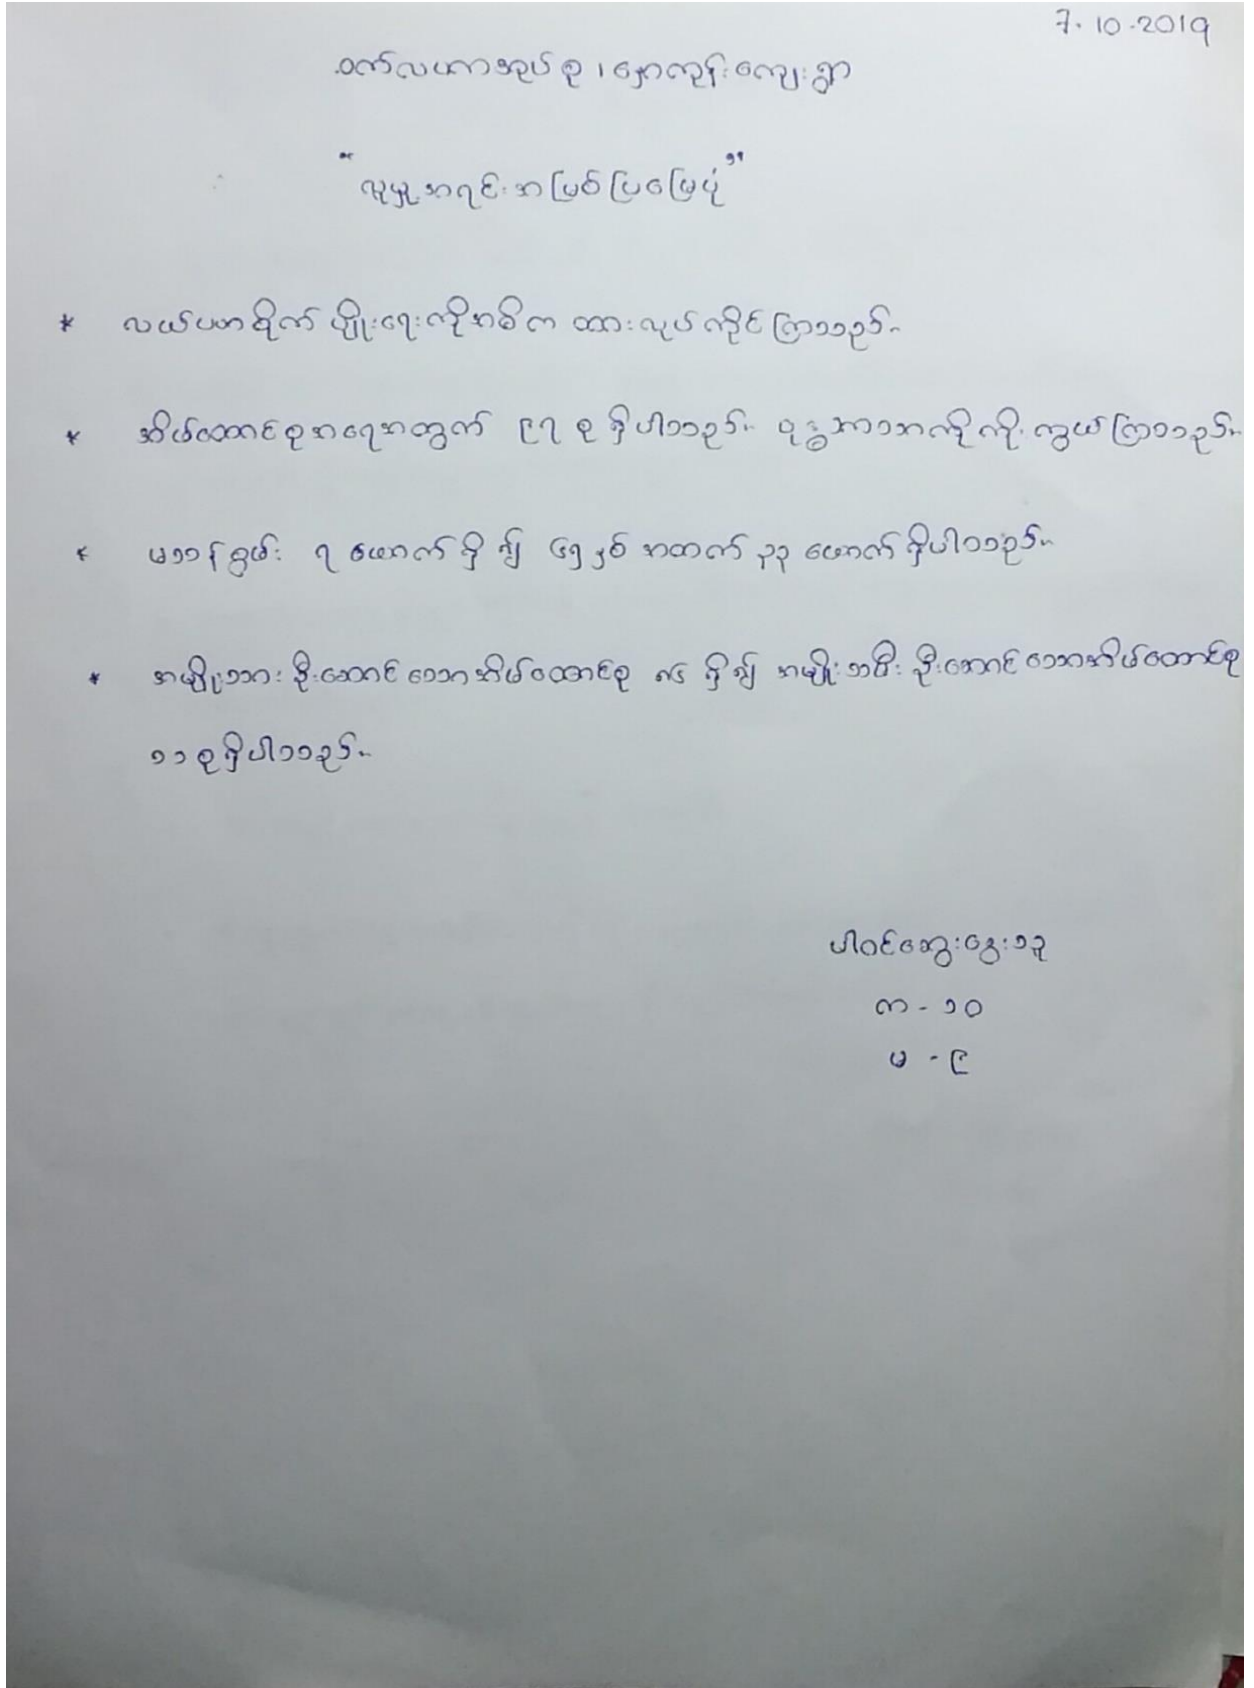 7.10.2019
ဝက်လပကာအုပ်စု၊ နှောကုန်းကျေးရွာ
"လူမှုအရင်းအမြစ်ပြမြေပုံ"
* လယ်ယာစိုက်ပျိုးရေးကိုအဓိက ထားလုပ်ကိုင်ကြသည်။
* အိမ်ထောင်စုအရေအတွက် ၉၇ စု ရှိပါသည်။ ဗုဒ္ဓဘာသာကိုကိုးကွယ်ကြသည်။
* မသန်စွမ်း ၇ ယောက်ရှိ၍ ၆၅နှစ် အထက် ၃၃ ယောက်ရှိပါသည်။
* အမျိုးသား ဦးဆောင်သောအိမ်ထောင်စု ၈၆ ရှိ၍ အမျိုးသမီး ဦးဆောင်သောအိမ်ထောင်စု
၁၁ စုရှိပါသည်။
ပါဝင်ဆွေးနွေးသူ
က - ၁၀
မ - ၉